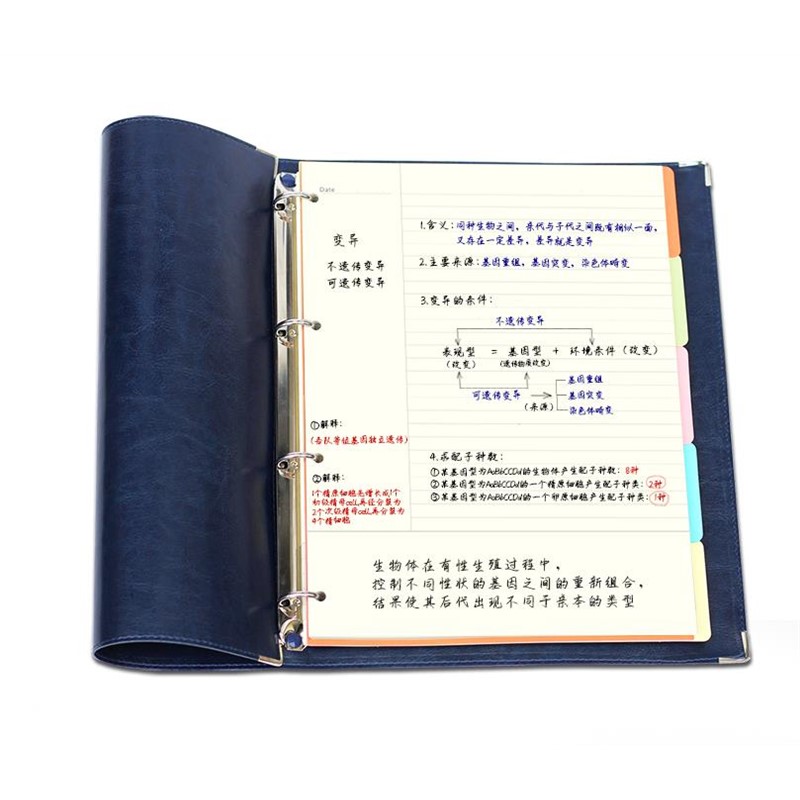 Date
变异
不遗传变异
可遗传变异
1.含义：同种生物之间，亲代与子代之间既有相似一面，
又存在一定差异，差异就是变异
2.主要来源：基因重组，基因突变，染色体畸变
3.变异的条件：
不遗传变异
表现型 = 基因型 + 环境条件（改变）
（改变） （遗传物质改变）
可遗传变异
（来源）
基因重组
基因突变
染色体畸变
①解释：
（各队等位基因独立遗传）
②解释：
1个精原细胞先增长成1个
初级精母cell再经分裂为
2个次级精母cell再分裂为
4个精细胞
4.求配子种数：
①某基因型为AaBbCCDd的生物体产生配子种数：8种
②某基因型为AaBbCCDd的一个精原细胞产生配子种类：2种
③某基因型为AaBbCCDd的一个卵原细胞产生配子种类：1种
生物体在有性生殖过程中，
控制不同性状的基因之间的重新组合，
结果使其后代出现不同于亲本的类型